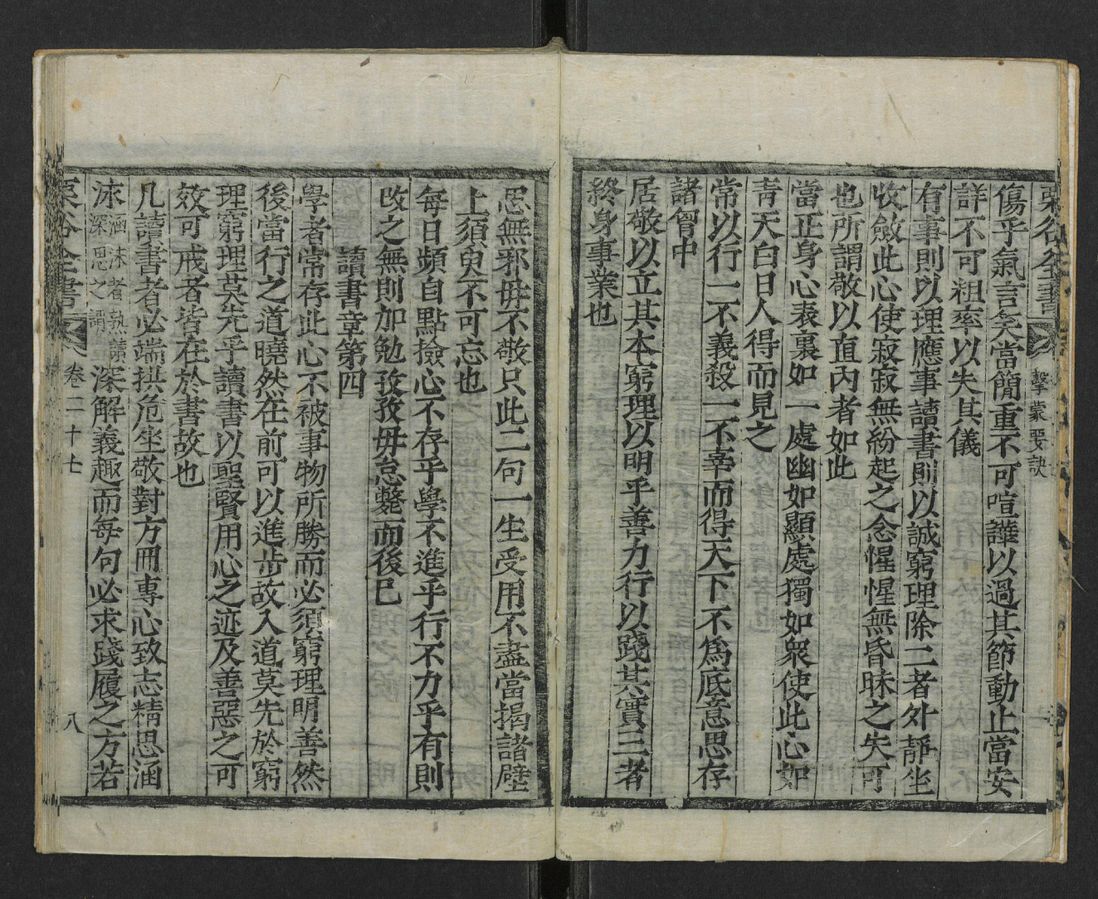 栗谷全書 擊蒙要訣
傷乎氣言笑當簡重不可喧譁以過其節動止當安
詳不可粗率以失其儀
有事則以理應事讀書則以誠窮理除二者外靜坐
收斂此心使寂寂無紛起之念惺惺無昏昧之失可
也所謂敬以直內者如此
當正身心表裏如一處幽如顯處獨如衆使此心如
靑天白日人得而見之
常以行一不義殺一不辜而得天下不爲底意思存
諸胷中
居敬以立其本窮理以明乎善力行以踐其實三者
終身事業也
思無邪毋不敬只此二句一生受用不盡當揭諸壁
上須臾不可忘也
每日頻自點檢心不存乎學不進乎行不力乎有則
改之無則加勉孜孜毋怠斃而後已
讀書章第四
學者常存此心不被事物所勝而必須窮理明善然
後當行之道曉然在前可以進步故入道莫先於窮
理窮理莫先乎讀書以聖賢用心之迹及善惡之可
效可戒者皆在於書故也
凡讀書者必端拱危坐敬對方冊專心致志精思涵
泳涵泳者熟讀深思之謂深解義趣而每句必求踐履之方若
栗谷全書 卷二十七 八